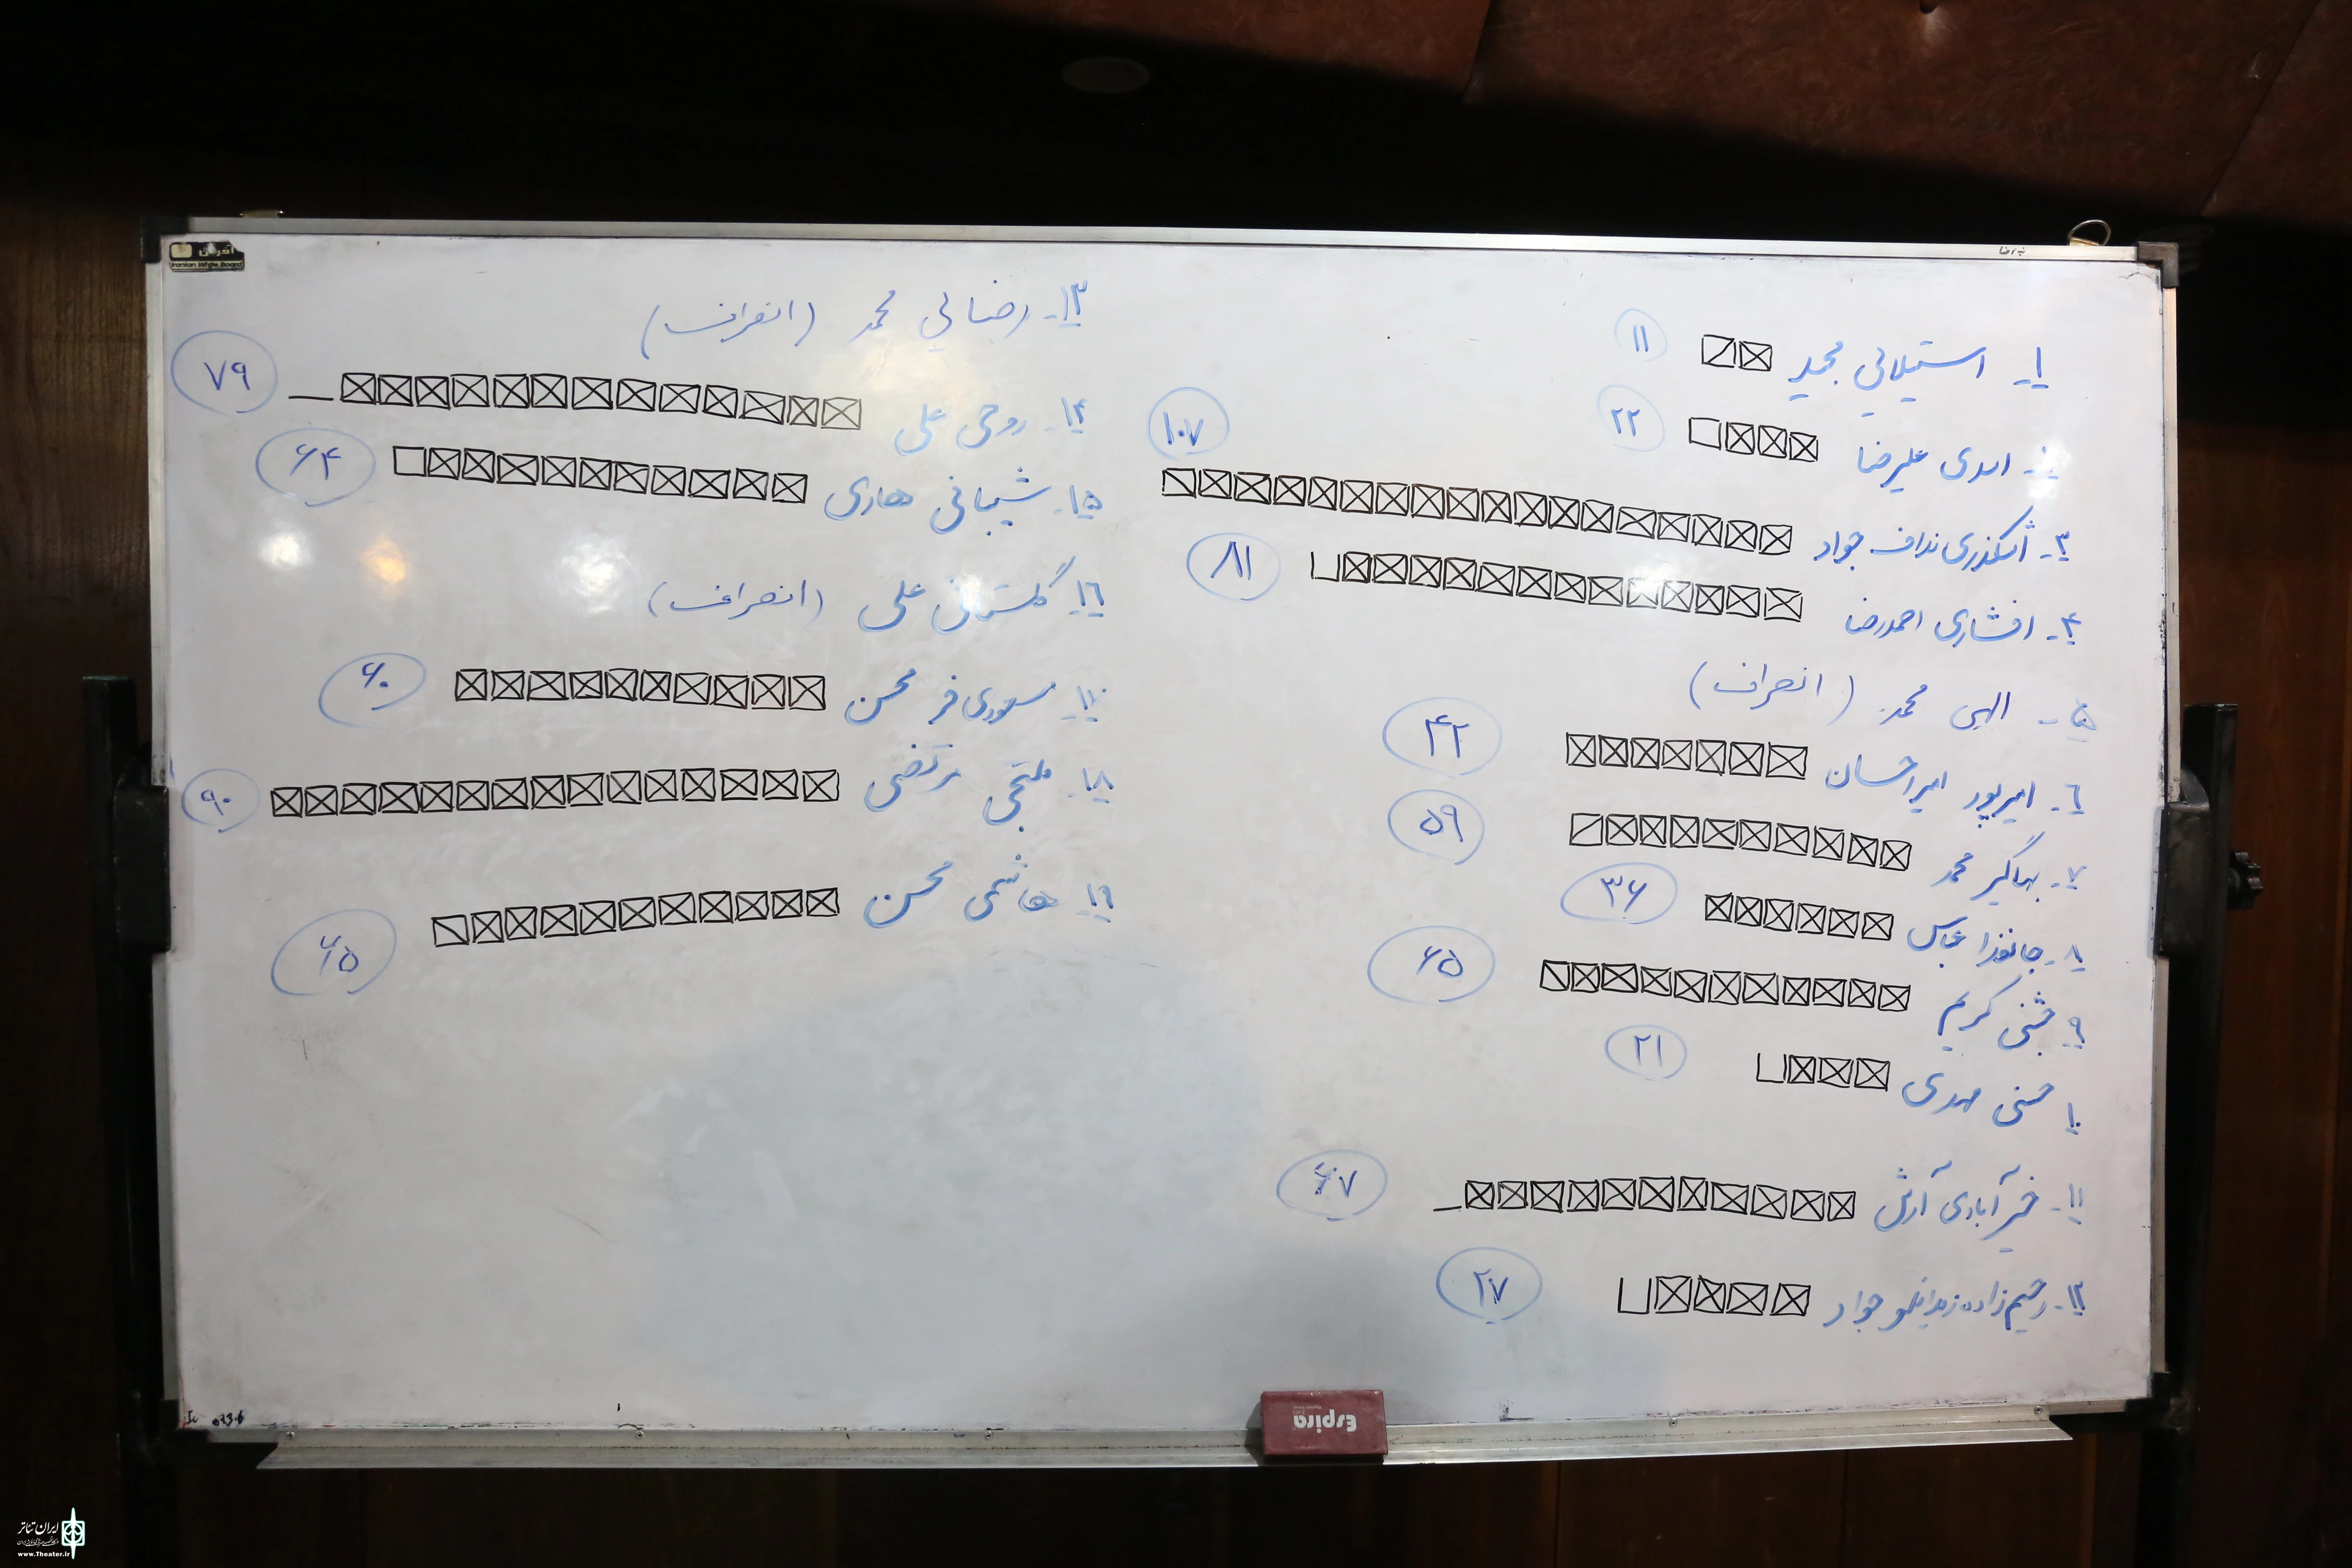 ۱- استیلائی مجید ۱۱
۲- اسدی علیرضا ۲۲
۳- اشکذری نداف جواد ۱۰۷
۴- افشاری احمدرضا ۸۱
۵- الهی محمد (انصراف)
۶- امیرپور امیراحسان ۴۲
۷- جهانگیر محمد ۵۹
۸- جانفدا عباس ۳۶
۹- جشنی کریم ۶۵
۱۰- حسنی مهدی ۲۱
۱۱- خیرآبادی آرش ۶۷
۱۲- رحیم‌زاده جواد ۲۷
۱۳- رضائی محمد (انصراف)
۱۴- روحی علی ۷۹
۱۵- شیبانی هادی ۶۴
۱۶- گلستانی علی (انصراف)
۱۷- مسعودی فر محسن ۶۰
۱۸- ملتجی مرتضی ۹۰
۱۹- هاشمی محسن ۶۵
Iranian White Board
Espira
ایران تئاتر
www.Theater.ir